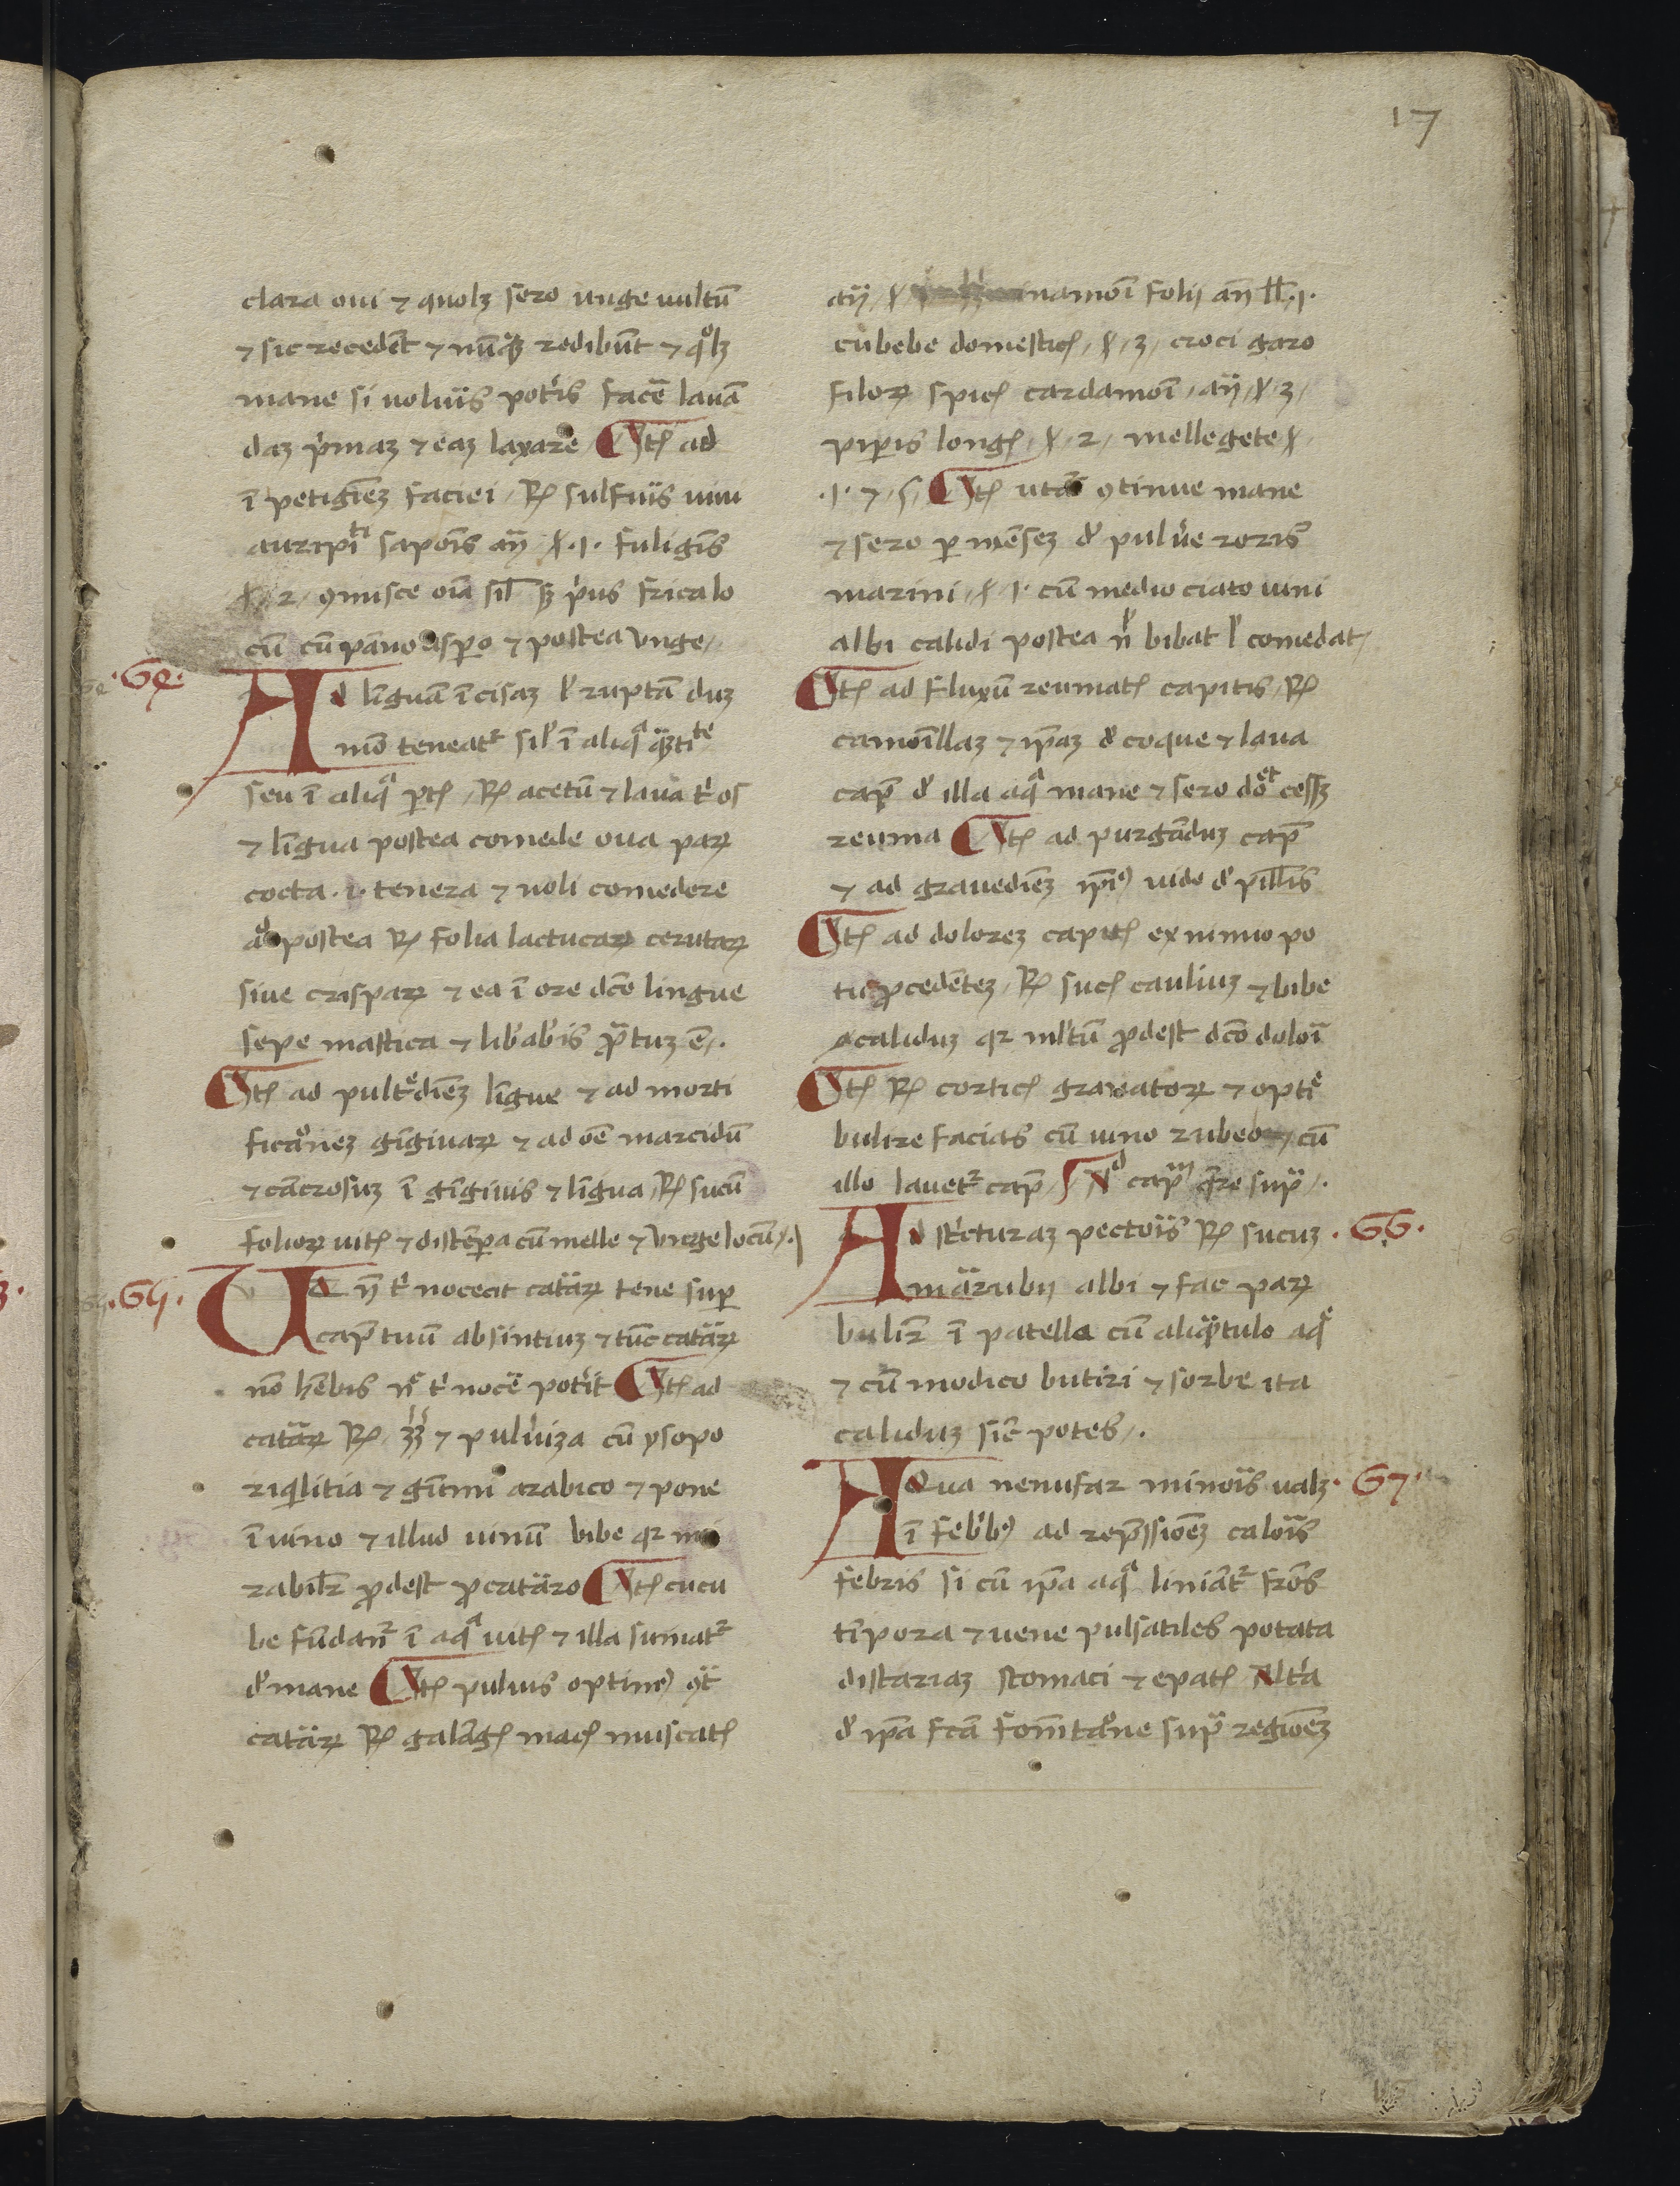 17
clara oui ⁊ quolꝫ sero unge uultū
⁊ sic recedēt ⁊ nūqꝫ redibūt ⁊ qolꝫ
mane si uoluĩs potĩs facē lauā
daꝫ pͥmaꝫ ⁊ eaꝫ laxare Itē ad
ī petigīeꝫ faciei ℞ sulfuĩs uiui
auripiti sapoīs añ .1. fuligīs
2 ꝯmisce oīa sil sꝫ pͥus frica lo
cū cū pāno aspo ⁊ postea unge
.64.
Ad līguā īcisaꝫ ł ruptā duꝫ
mō teneatʳ sil ī aliqᵃ qꝫtite
seu ī aliqᵃ pte ℞ acetū ⁊ laua tͥ os
⁊ līgua postea comede oua paꝝ
cocta .i. tenera ⁊ noli comedere
postea ℞ folia lactucaꝝ ceruꝝ
siue crispaꝝ ⁊ ea ī ore dcō lingue
sepe mastica ⁊ libabis ꝓbatuꝫ ē.
Itē ad putdīeꝫ līgue ⁊ ad morti
ficaoneꝫ gīgiuaꝝ ⁊ ad oē marcidū
⁊ cācrosuꝫ ī gīgiuis ⁊ līgua ℞ sucū
folioꝝ uitꝭ ⁊ distēpa cū melle ⁊ unge locū.
.65.
Ut ñ tͥ noceat cataꝝ tene sup
capͭ tuū absintiuꝫ ⁊ tūc cataꝝ
nō hēbis nͨ tͥ nocē potͥit Itē ad
cataꝝ ℞ ⁊ puluͥiza cū ysopo
riqͥlitia ⁊ gūmi arabico ⁊ pone
ī uino ⁊ illud uinū bibe qꝛ mi
rabilʳ ꝓdest ꝓ cataro Itē cucu
be fūdanʳ ī aqᵃ uitꝭ ⁊ illa sumatʳ
d mane Itē puluis optimꝰ ꝯͭ
cataꝝ ℞ galāgꝭ macꝭ muscatꝭ
añ namōi folij añ .1.
cubebe domesticꝭ 3 croci garo
filoꝝ spicꝭ cardamōi añ 3
pipis longꝭ 2 mellegete
.1. ⁊ s Itē utāt ꝯtinue mane
⁊ sero p mēseꝫ d puluͥe roris
marini 1 cū medio ciato uini
albi calidi postea ñ bibat ł comedat
Itē ad fluxū reumatꝭ capitis ℞
camoīllaꝫ ⁊ ipaꝫ d coque ⁊ laua
capͭ d illa aqᵃ mane ⁊ sero dōet cessꝫ
reuma Itē ad purgāduꝫ capͭ
⁊ ad grauedīeꝫ ipiꝰ uide d pillis
Itē ad doloreꝫ capitꝭ ex nimio po
tu ꝓcedēteꝫ ℞ sucꝭ cauliuꝫ ⁊ bibe
caliduꝫ qꝛ mltū ꝓdest dcō dolori
Itē ℞ corticꝭ granatoꝝ ⁊ optiᵉ
bulire facias cū uino rubeo cū
illo lauetʳ capͭ Ad capᵐ qͬre supͣ.
.66.
Ad stͥcturaꝫ pectoĩs ℞ sucuꝫ
marubij albi ⁊ fac paꝝ
bulirͤ ī patella cū aliqͣtulo aqᵉ
⁊ cū modico butiri ⁊ sorbe ita
caliduꝫ sic potes.
.67.
Aqua nenufar minoĩs ualꝫ
ī febͥbꝰ ad repͤssioēꝫ caloĩs
febris si cū ipa aqᵃ liniātʳ frōs
tīpora ⁊ uene pulsatiles potata
distariaꝫ stomaci ⁊ epatꝭ altͥa
d ipa fcā fomītaōne supͣ regioēꝫ